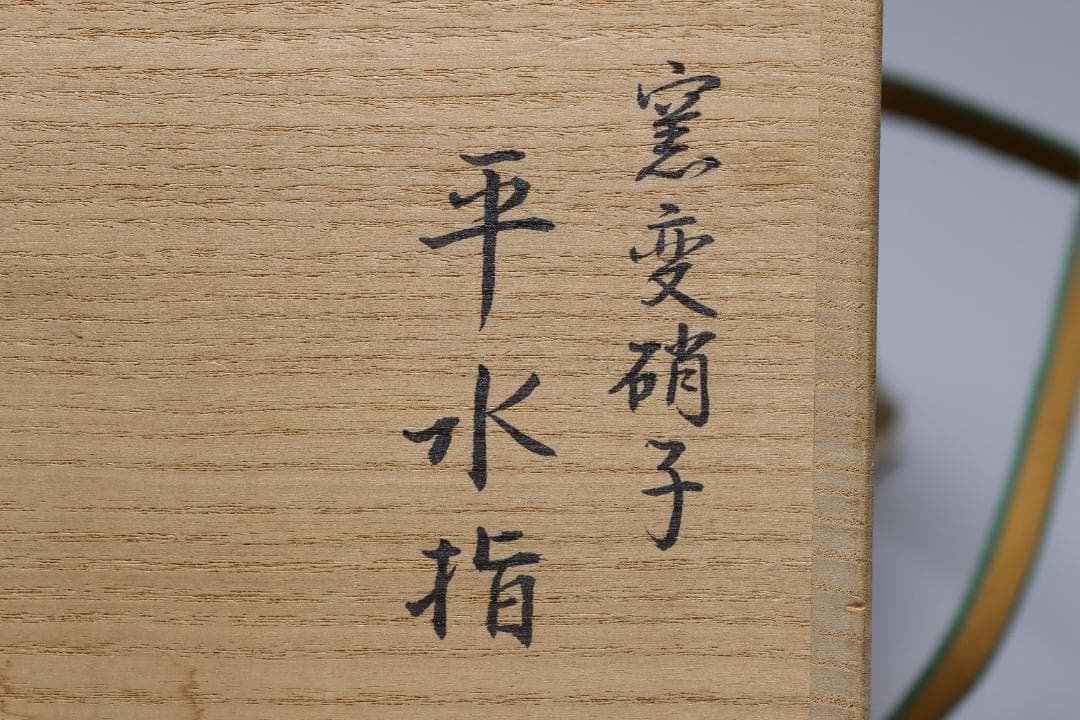 窯変硝子
平水指